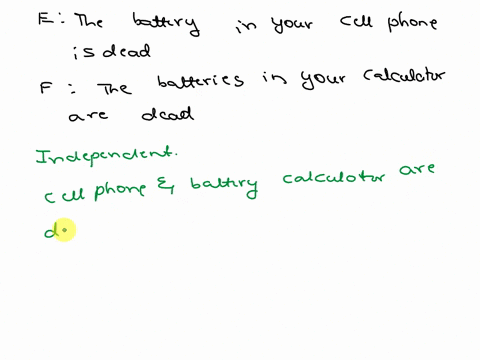 E: The battery in your cell phone
is dead
F: The batteries in your calculator
are dead
Independent.
cell phone & battery calculator are
d